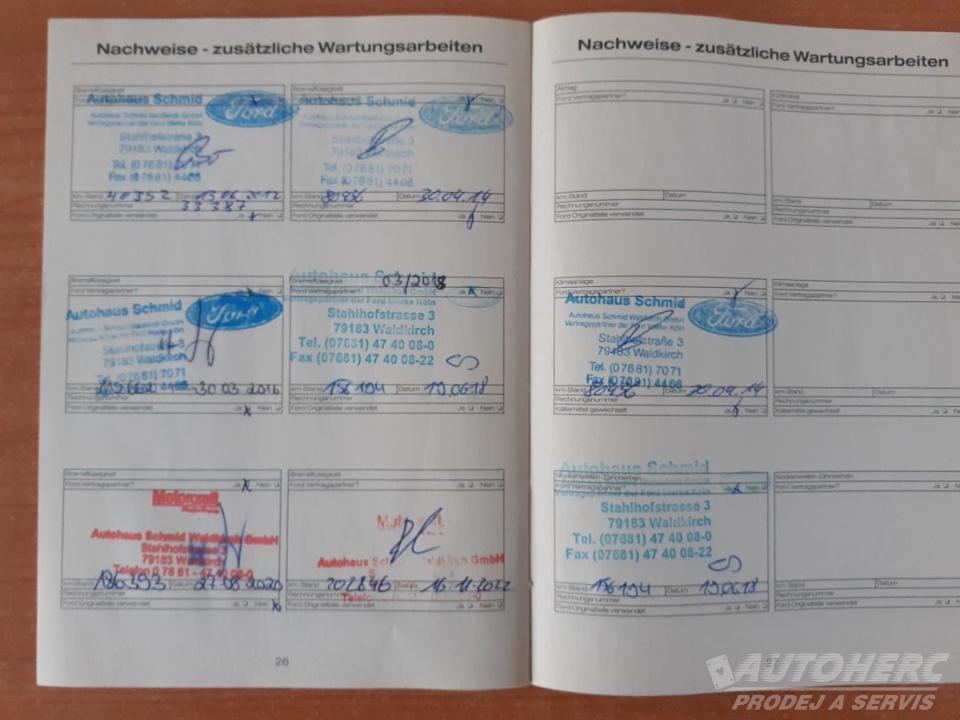 Nachweise - zusätzliche Wartungsarbeiten
Bremsflüssigkeit
Ford Vertragspartner? Ja Nein
Autohaus Schmid
Autohaus Schmid Waldkirch GmbH
Vertragspartner der Ford Werke Köln
Ford
Stahlhofstraße 3
79183 Waldkirch
Tel. (07681) 7071
Fax (07681) 4466
km-Stand 40352 Datum 13.06.2012
Rechnungsnummer 33387
Ford Originalteile verwendet Ja Nein
Bremsflüssigkeit
Ja Nein
Autohaus Schmid
Ford
Stahlhofstraße 3
79183 Waldkirch
Tel. (07681) 7071
Fax (07681) 4466
km-Stand 80456 Datum 30.04.14
Rechnungsnummer
Ford Originalteile verwendet Ja Nein
Bremsflüssigkeit
Ford Vertragspartner? Ja Nein
Autohaus Schmid
Autohaus Schmid Waldkirch GmbH
Ford
Stahlhofstraße 3
79183 Waldkirch
Tel. (07681) 7071
Fax (07681) 4466
30 03 2016
Rechnungsnummer
Ford Originalteile verwendet Ja Nein
Bremsflüssigkeit 03/2018
Ford Vertragspartner? Ja Nein
Autohaus Schmid
Vertragspartner der Ford Werke Köln
Stahlhofstrasse 3
79183 Waldkirch
Tel. (07681) 47 40 08-0
Fax (07681) 47 40 08-22
km-Stand 156194 Datum 19.06.18
Rechnungsnummer
Ford Originalteile verwendet Ja Nein
Bremsflüssigkeit
Ford Vertragspartner? Ja Nein
Motorcraft
Autohaus Schmid Waldkirch GmbH
Stahlhofstraße 3
79183 Waldkirch
Telefon 0 76 81 - 47 40 08-0
km-Stand 186393 Datum 27.08 2020
Rechnungsnummer
Ford Originalteile verwendet Ja Nein
Bremsflüssigkeit
Ford Vertragspartner? Ja Nein
Autohaus Schmid Waldkirch GmbH
km-Stand 202846 16.11.2022
Rechnungsnummer
Ford Originalteile verwendet Ja Nein
26
Nachweise - zusätzliche Wartungsarbeiten
Airbag
Ford Vertragspartner? Ja Nein
km-Stand Datum
Rechnungsnummer
Ford Originalteile verwendet Ja Nein
Ford Vertragspartner? Ja
km-Stand Datum
Rechnungsnummer
Ford Originalteile verwendet Ja
Klimaanlage
Ford Vertragspartner? Ja Nein
Autohaus Schmid
Autohaus Schmid Waldkirch GmbH
Vertragspartner der Ford Werke Köln
Ford
Stahlhofstraße 3
79183 Waldkirch
Tel. (07681) 7071
Fax (07681) 4466
km-Stand 80456 Datum 30.04.14
Rechnungsnummer
Kältemittel gewechselt Ja Nein
Klimaanlage
Ford Vertragspartner? Ja
km-Stand Datum
Rechnungsnummer
Kältemittel gewechselt Ja
Nockenwellen-Zahnriemen
Ford Vertragspartner? Ja Nein
Autohaus Schmid
Vertragspartner der Ford Werke Köln
Stahlhofstrasse 3
79183 Waldkirch
Tel. (07681) 47 40 08-0
Fax (07681) 47 40 08-22
km-Stand 156194 Datum 19.06.18
Rechnungsnummer
Ford Originalteile verwendet Ja Nein
Nockenwellen-Zahnriemen
Ford Vertragspartner? Ja
km-Stand Datum
Rechnungsnummer
Ford Originalteile verwendet Ja
AUTOHERC
PRODEJ A SERVIS